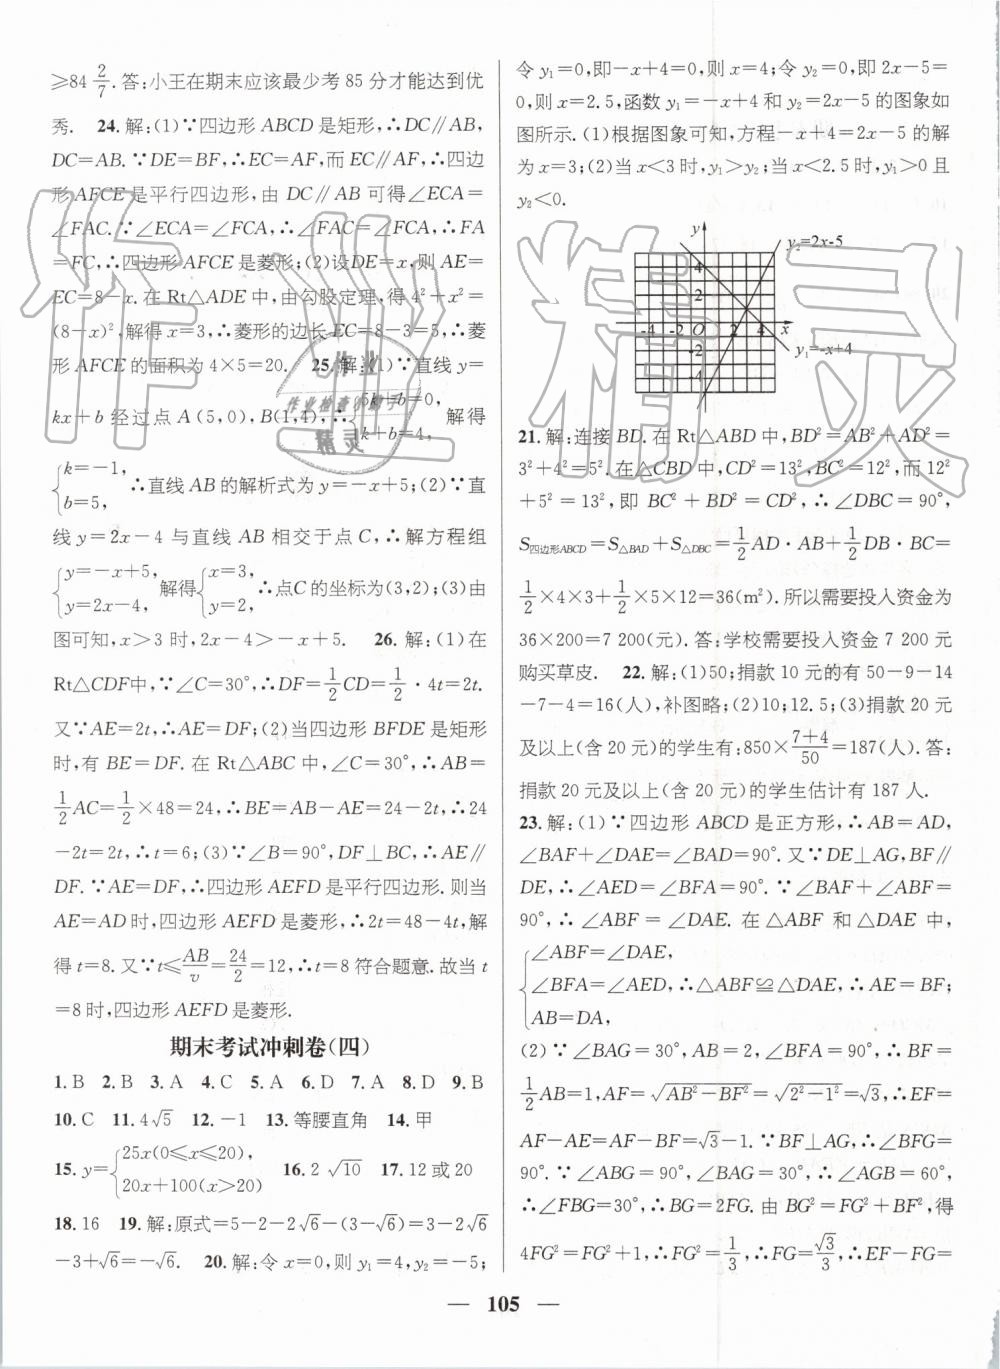 ≥84 2/7. 答:小王在期末应该最少考 85 分才能达到优
秀. 24. 解:(1)∵四边形 ABCD 是矩形,∴DC∥AB,
DC=AB. ∵DE=BF,∴EC=AF,而 EC∥AF,∴四边
形 AFCE 是平行四边形,由 DC∥AB 可得∠ECA=
∠FAC. ∵∠ECA=∠FCA,∴∠FAC=∠FCA,∴FA
=FC,∴四边形 AFCE 是菱形;(2)设DE=x,则 AE=
EC=8-x. 在 Rt△ADE 中,由勾股定理,得 4²+x²=
(8-x)²,解得 x=3,∴菱形的边长 EC=8-3=5,∴菱
形 AFCE 的面积为 4×5=20. 25. 解:(1)∵直线 y=
kx+b 经过点 A(5,0),B(1,4),∴{5k+b=0, k+b=4, 解得
{k=-1, b=5, ∴直线 AB 的解析式为 y=-x+5;(2)∵直
线 y=2x-4 与直线 AB 相交于点 C,∴解方程组
{y=-x+5, y=2x-4, 解得{x=3, y=2, ∴点C 的坐标为(3,2);(3)由
图可知,x>3 时,2x-4>-x+5. 26. 解:(1)在
Rt△CDF中,∵∠C=30°,∴DF=1/2CD=1/2·4t=2t.
又∵AE=2t,∴AE=DF;(2)当四边形 BFDE 是矩形
时,有 BE=DF. 在 Rt△ABC 中,∠C=30°,∴AB=
1/2AC=1/2×48=24,∴BE=AB-AE=24-2t,∴24
-2t=2t,∴t=6;(3)∵∠B=90°,DF⊥BC,∴AE∥
DF. ∵AE=DF,∴四边形 AEFD 是平行四边形. 则当
AE=AD时,四边形 AEFD 是菱形,∴2t=48-4t,解
得 t=8. 又∵t≤AB/v=24/2=12,∴t=8 符合题意. 故当 t
=8时,四边形 AEFD 是菱形.
期末考试冲刺卷(四)
1. B 2. B 3. A 4. C 5. A 6. D 7. A 8. D 9. B
10. C 11. 4√5 12. -1 13. 等腰直角 14. 甲
15. y={25x(0≤x≤20), 20x+100(x>20) 16. 2√10 17. 12 或 20
18. 16 19. 解:原式=5-2-2√6-(3-√6)=3-2√6
-3+√6=-√6. 20. 解:令 x=0,则 y₁=4,y₂=-5;
令 y₁=0,即-x+4=0,则 x=4;令 y₂=0,即 2x-5=
0,则 x=2.5,函数 y₁=-x+4 和 y₂=2x-5 的图象如
图所示. (1)根据图象可知,方程-x+4=2x-5 的解
为 x=3;(2)当 x<3 时,y₁>y₂;当 x<2.5 时,y₁>0 且
y₂<0.
y
y₂=2x-5
4
2
-4 -2 O 2 4 x
-2
-4
y₁=-x+4
21. 解:连接 BD. 在 Rt△ABD 中,BD²=AB²+AD²=
3²+4²=5². 在△CBD 中,CD²=13²,BC²=12²,而 12²
+5²=13²,即 BC²+BD²=CD²,∴∠DBC=90°,
S四边形ABCD=S△BAD+S△DBC=1/2AD·AB+1/2DB·BC=
1/2×4×3+1/2×5×12=36(m²). 所以需要投入资金为
36×200=7 200(元). 答:学校需要投入资金 7 200 元
购买草皮. 22. 解:(1)50;捐款 10 元的有 50-9-14
-7-4=16(人),补图略;(2)10;12.5;(3)捐款 20 元
及以上(含 20 元)的学生有:850×(7+4)/50=187(人). 答:
捐款 20 元及以上(含 20 元)的学生估计有 187 人.
23. 解:(1)∵四边形 ABCD 是正方形,∴AB=AD,
∠BAF+∠DAE=∠BAD=90°. 又∵DE⊥AG,BF∥
DE,∴∠AED=∠BFA=90°. ∵∠BAF+∠ABF=
90°,∴∠ABF=∠DAE. 在△ABF 和△DAE 中,
{∠ABF=∠DAE,
∠BFA=∠AED,∴△ABF≌△DAE,∴AE=BF;
AB=DA,
(2)∵∠BAG=30°,AB=2,∠BFA=90°,∴BF=
1/2AB=1,AF=√(AB²-BF²)=√(2²-1²)=√3,∴EF=
AF-AE=AF-BF=√3-1. ∵BF⊥AG,∴∠BFG=
90°. ∵∠ABG=90°,∠BAG=30°,∴∠AGB=60°,
∴∠FBG=30°,∴BG=2FG. 由 BG²=FG²+BF²,得
4FG²=FG²+1,∴FG²=1/3,∴FG=√3/3,∴EF-FG=
— 105 —
作业精灵
作业检查小助手